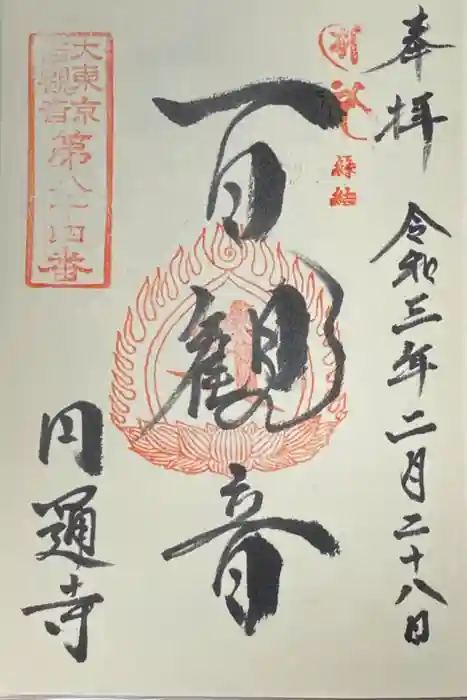 奉拝
令和三年二月二十八日
百観音
円通寺
大東京
百観音
第八十四番
縁結